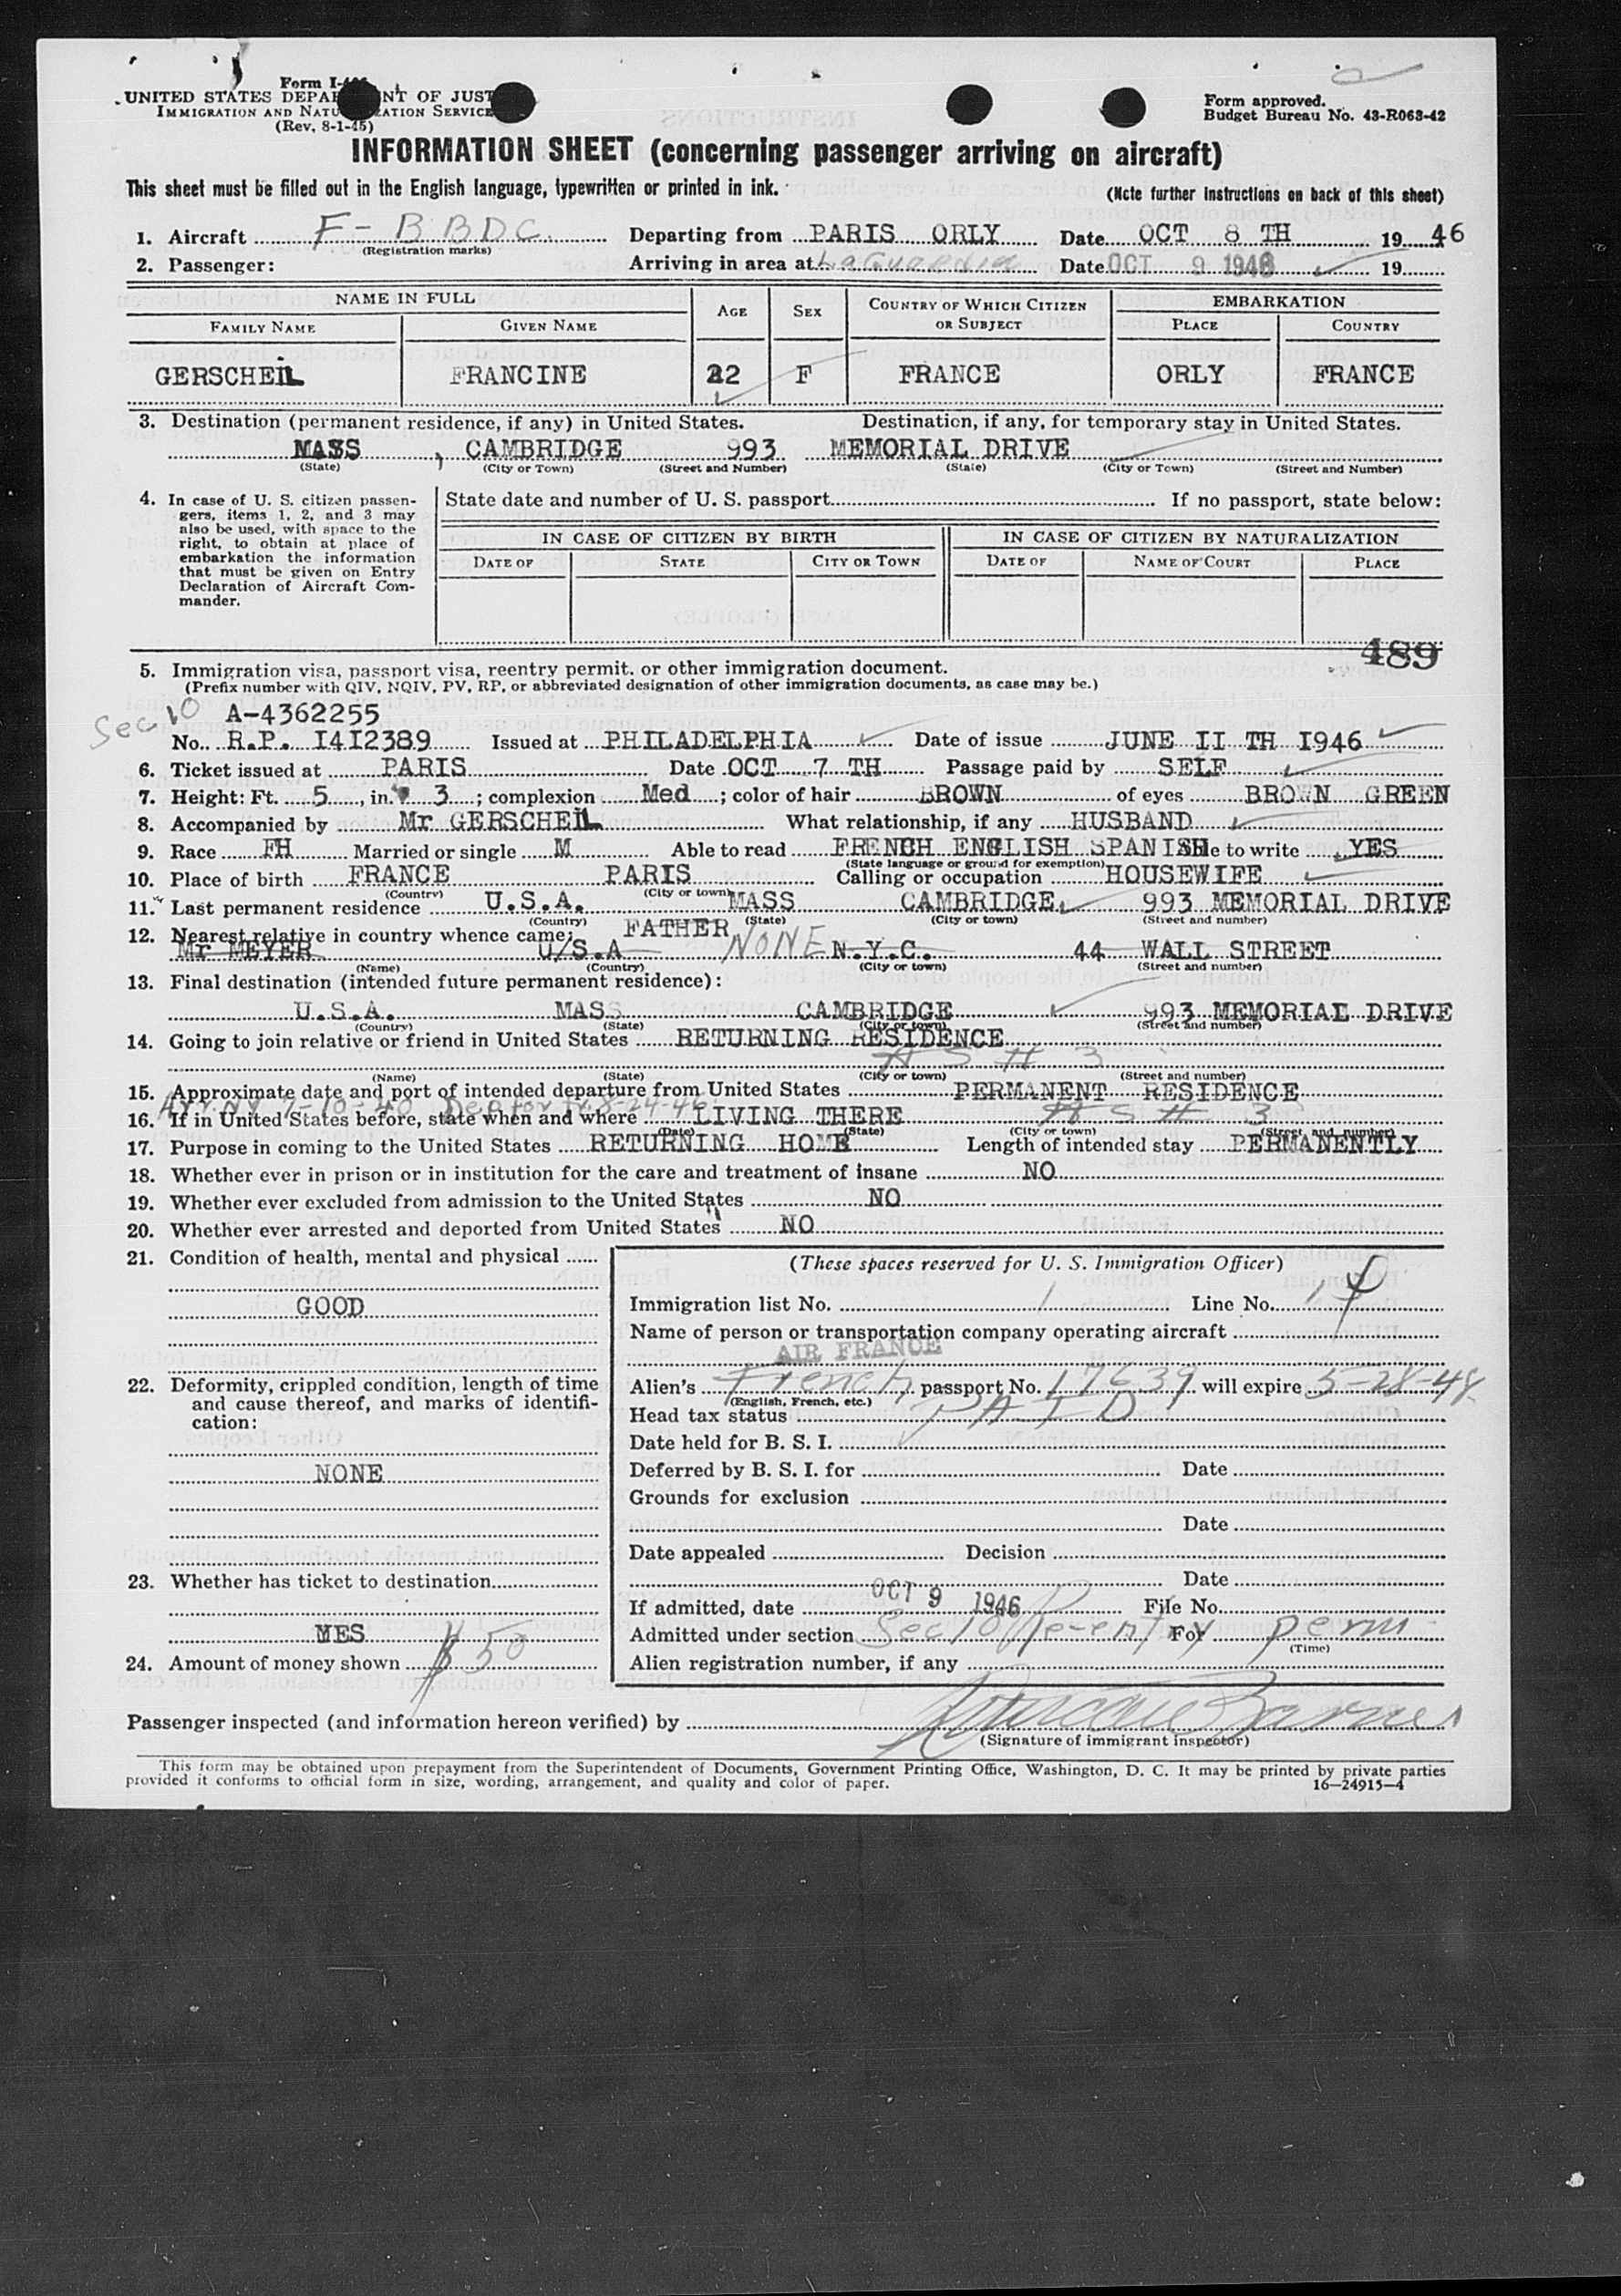 Form I-466
UNITED STATES DEPARTMENT OF JUSTICE
IMMIGRATION AND NATURALIZATION SERVICE
(Rev. 8-1-45)
Form approved.
Budget Bureau No. 43-R063-42
INFORMATION SHEET (concerning passenger arriving on aircraft)
This sheet must be filled out in the English language, typewritten or printed in ink.
(Note further instructions on back of this sheet)
1. Aircraft F-BBDC. Departing from PARIS ORLY Date OCT 8 TH 19 46
(Registration marks)
2. Passenger: Arriving in area at LaGuardia Date OCT 9 1946 19
NAME IN FULL AGE SEX COUNTRY OF WHICH CITIZEN OR SUBJECT EMBARKATION
FAMILY NAME GIVEN NAME PLACE COUNTRY
GERSCHEL FRANCINE 22 F FRANCE ORLY FRANCE
3. Destination (permanent residence, if any) in United States. Destination, if any, for temporary stay in United States.
MASS, CAMBRIDGE 993 MEMORIAL DRIVE
(State) (City or Town) (Street and Number) (State) (City or Town) (Street and Number)
4. In case of U. S. citizen passengers, items 1, 2, and 3 may also be used, with space to the right, to obtain at place of embarkation the information that must be given on Entry Declaration of Aircraft Commander.
State date and number of U. S. passport If no passport, state below:
IN CASE OF CITIZEN BY BIRTH IN CASE OF CITIZEN BY NATURALIZATION
DATE OF STATE CITY OR TOWN DATE OF NAME OF COURT PLACE
489
5. Immigration visa, passport visa, reentry permit, or other immigration document.
(Prefix number with QIV, NQIV, PV, RP, or abbreviated designation of other immigration documents, as case may be.)
Sec 10 A-4362255
No. R.P. I4I2389 Issued at PHILADELPHIA Date of issue JUNE II TH I946
6. Ticket issued at PARIS Date OCT 7 TH Passage paid by SELF
7. Height: Ft. 5, in. 3; complexion Med; color of hair BROWN of eyes BROWN GREEN
8. Accompanied by Mr GERSCHEL What relationship, if any HUSBAND
9. Race FH Married or single M Able to read FRENCH ENGLISH SPANISH e to write YES
(State language or ground for exemption)
10. Place of birth FRANCE PARIS Calling or occupation HOUSEWIFE
(Country) (City or town)
11. Last permanent residence U.S.A. MASS CAMBRIDGE 993 MEMORIAL DRIVE
(Country) (State) (City or town) (Street and number)
12. Nearest relative in country whence came; FATHER
Mr MEYER U/S.A NONE N.Y.C. 44 WALL STREET
(Name) (Country) (City or town) (Street and number)
13. Final destination (intended future permanent residence):
U.S.A. MASS CAMBRIDGE 993 MEMORIAL DRIVE
(Country) (State) (City or town) (Street and number)
14. Going to join relative or friend in United States RETURNING RESIDENCE
(Name) (State) (City or town) (Street and number)
15. Approximate date and port of intended departure from United States PERMANENT RESIDENCE
16. If in United States before, state when and where LIVING THERE
(Date) (State) (City or town) (Street and number)
17. Purpose in coming to the United States RETURNING HOME Length of intended stay PERMANENTLY
18. Whether ever in prison or in institution for the care and treatment of insane NO
19. Whether ever excluded from admission to the United States NO
20. Whether ever arrested and deported from United States NO
21. Condition of health, mental and physical
GOOD
22. Deformity, crippled condition, length of time and cause thereof, and marks of identification:
NONE
23. Whether has ticket to destination
YES
24. Amount of money shown $50
(These spaces reserved for U. S. Immigration Officer)
Immigration list No. 1 Line No.
Name of person or transportation company operating aircraft
AIR FRANCE
Alien's French passport No. 17639 will expire 5-28-48
(English, French, etc.)
Head tax status PAID
Date held for B. S. I.
Deferred by B. S. I. for Date
Grounds for exclusion
Date
Date appealed Decision
Date
If admitted, date OCT 9 1946 File No.
Admitted under section Sec 10 Re-entry For perm
(Time)
Alien registration number, if any
Passenger inspected (and information hereon verified) by
(Signature of immigrant inspector)
This form may be obtained upon prepayment from the Superintendent of Documents, Government Printing Office, Washington, D. C. It may be printed by private parties
provided it conforms to official form in size, wording, arrangement, and quality and color of paper. 16—24915-4